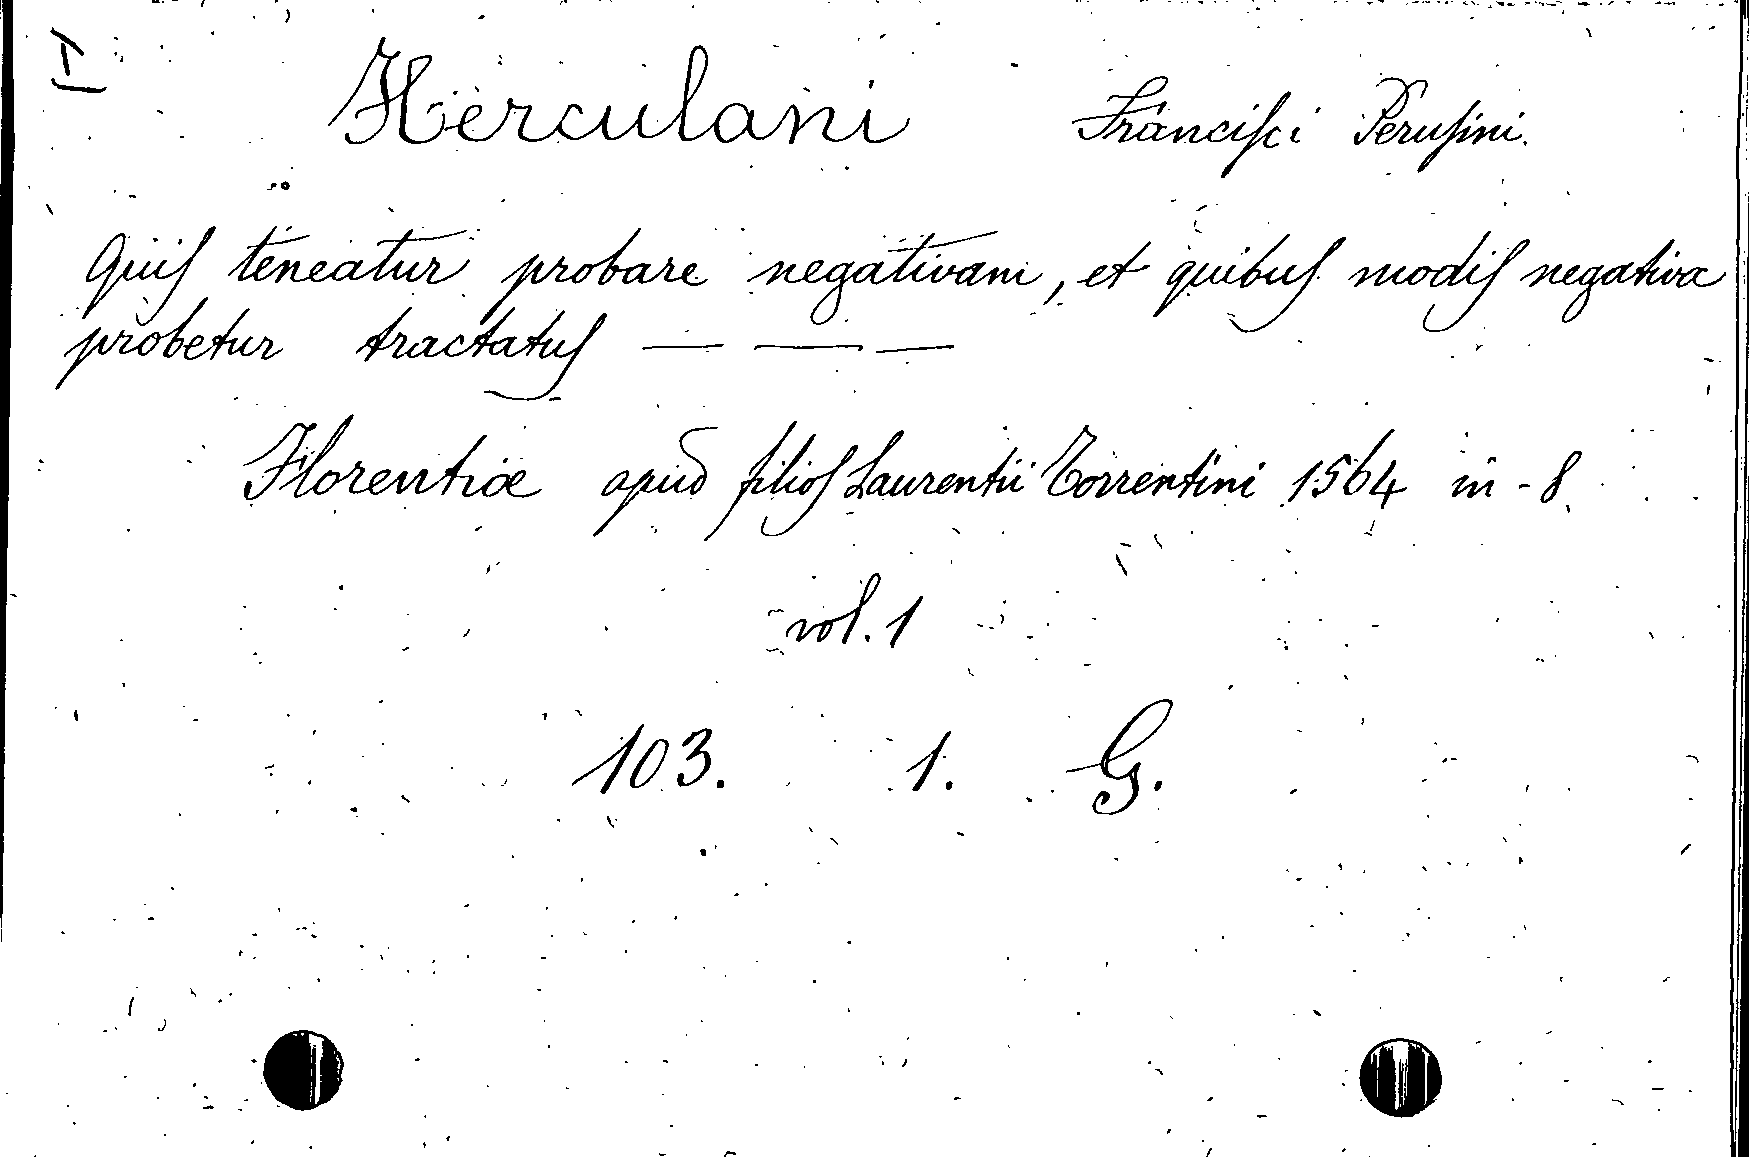 I
Herculani Francisci Perusini.
Quis teneatur probare negativam, et quibus modis negativa
probetur tractatus — — —
Florentiæ apud filios Laurentii Torrentini 1564 in-8.
vol. 1
103. 1. G.